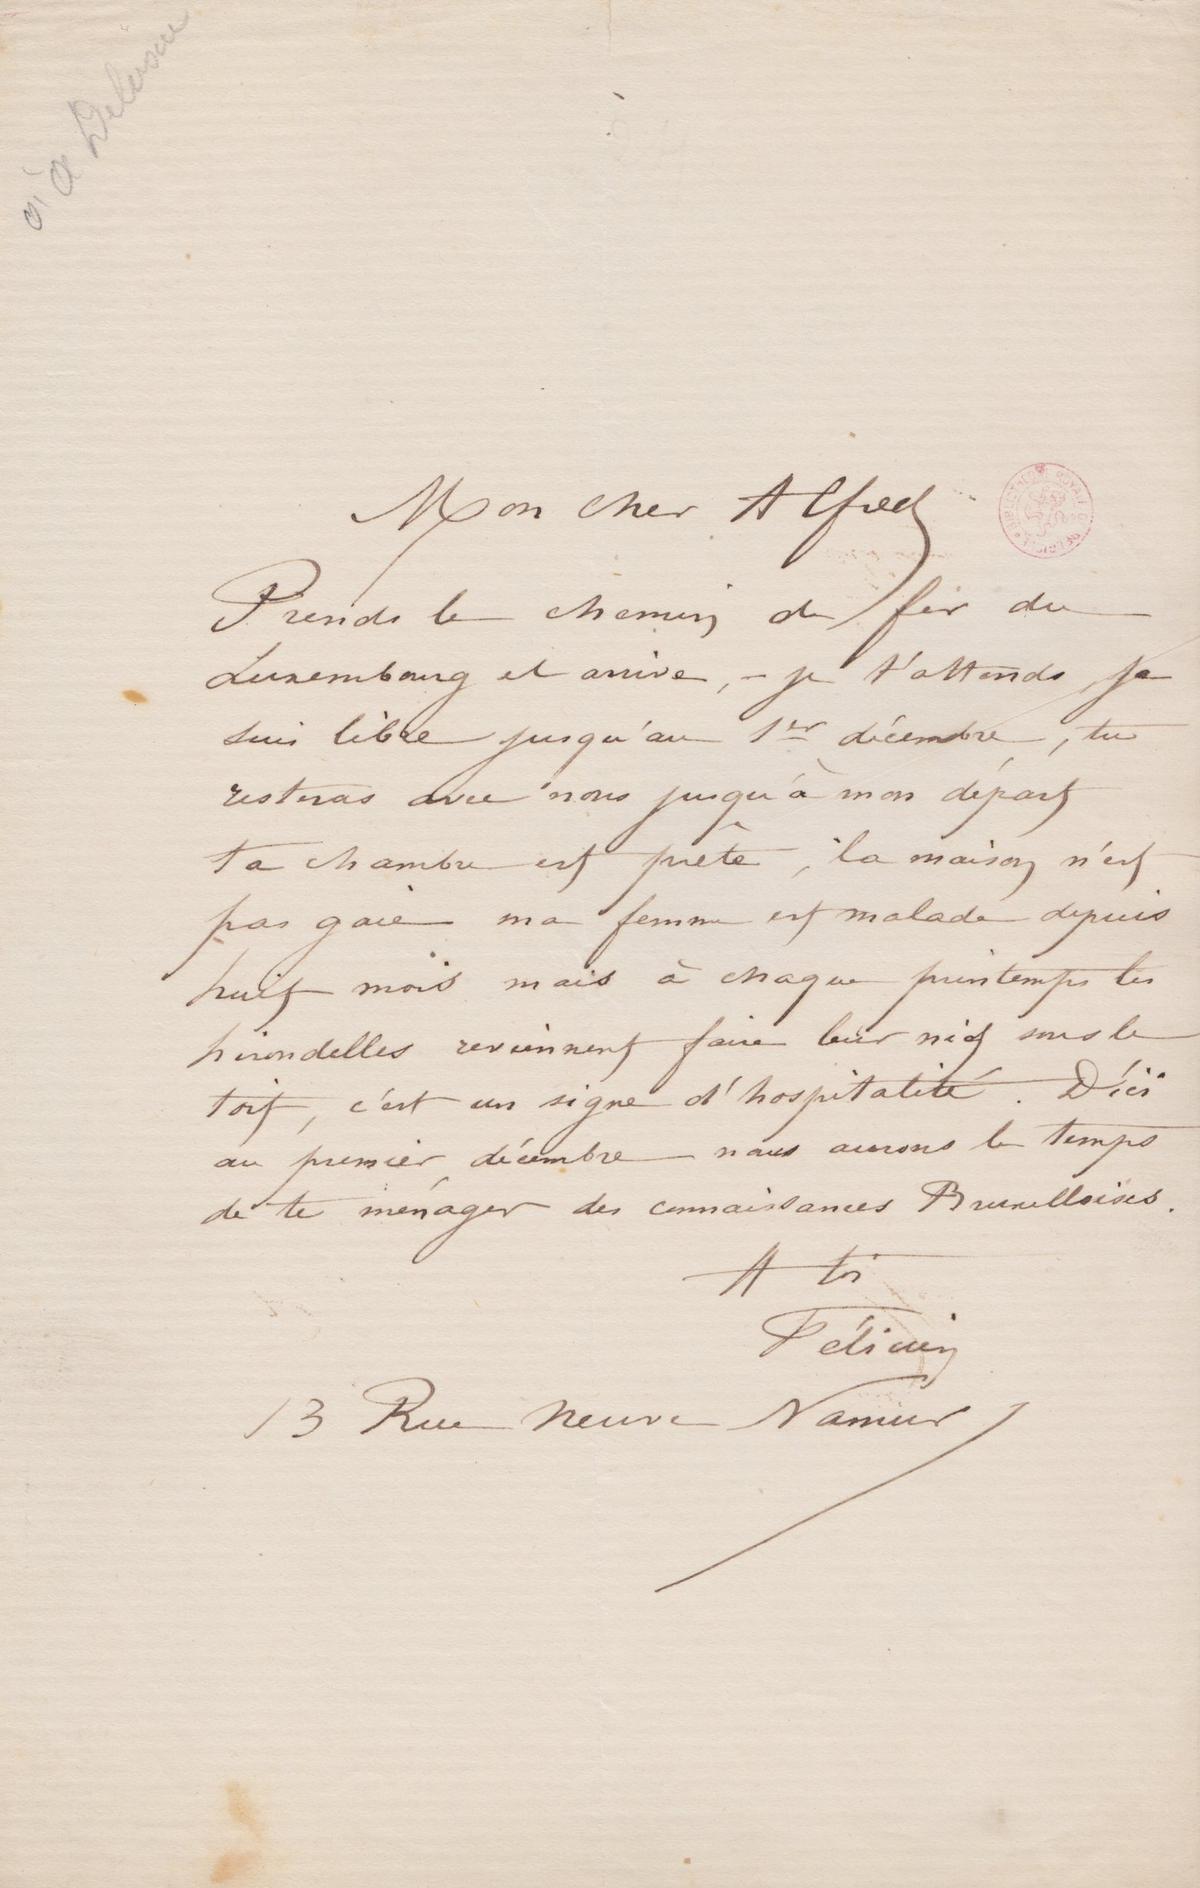 à A Delvau
Mon cher Alfred
Prends le chemin de fer du
Luxembourg et arrive, – je t'attends, je
suis libre jusqu'au 1er décembre, tu
resteras avec nous jusqu'à mon départ
ta chambre est prête, la maison n'est
pas gaie ma femme est malade depuis
huit mois mais à chaque printemps les
hirondelles reviennent faire leur nid sous le
toit, c'est un signe d'hospitalité. D'ici
au premier décembre nous aurons le temps
de te ménager des connaissances Bruxelloises.
A toi
Félicien
13 Rue Neuve Namur